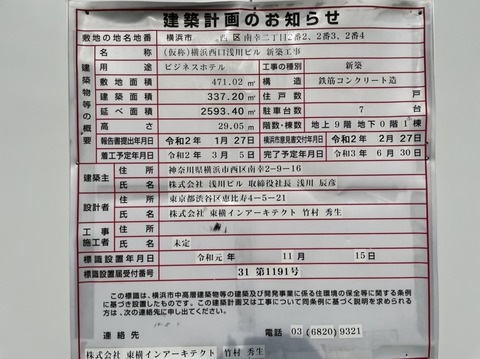 建築計画のお知らせ
敷地の地名地番 横浜市 西区南幸二丁目2番2、2番3、2番4
建築物等の概要
名称 (仮称)横浜西口浅川ビル 新築工事
用途 ビジネスホテル 工事の種別 新築
敷地面積 471.02㎡ 構造 鉄筋コンクリート造
建築面積 337.20㎡ 住戸数 戸
延べ面積 2593.40㎡ 駐車台数 7台
高さ 29.05m 階数・棟数 地上9階 地下0階 1棟
報告書提出年月日 令和2年 1月27日 横浜市意見書交付年月日 令和2年 2月27日
着工予定年月日 令和2年 3月5日 完了予定年月日 令和3年 6月30日
建築主 住所 神奈川県横浜市西区南幸2-9-16
氏名 株式会社 浅川ビル 取締役社長 浅川 辰彦
設計者 住所 東京都渋谷区恵比寿4-5-21
氏名 株式会社 東横インアーキテクト 竹村 秀生
工事施工者 住所
氏名 未定
標識設置年月日 令和元年 11月 15日
標識設置届受付番号 31 第1191号
この標識は、横浜市中高層建築物等の建築及び開発事業に係る住環境の保全等に関する条例
に基づき設置したものです。この建築計画又は工事について同条例に基づく説明を求められる
方は、次の連絡先に申し出てください。
連絡先 電話 03(6820)9321
株式会社 東横インアーキテクト 竹村 秀生